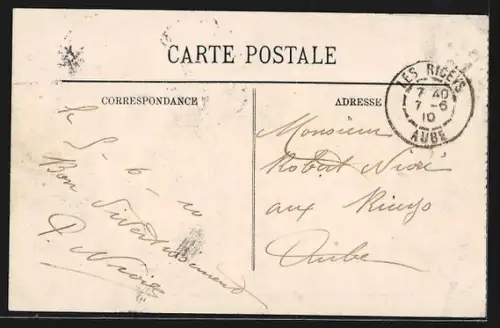 CARTE POSTALE
CORRESPONDANCE
ADRESSE
LES RICEYS
7 40
7 - 6
10
AUBE
le 5-6-10
Bon Divertissement
Monsieur
Robert
aux Riceys
Aube